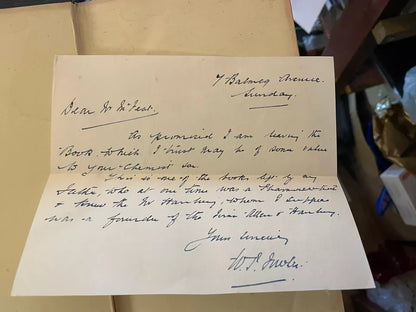 7 Barnes Avenue.
Sunday.
Dear Mr McFeat.
As promised I am leaving the
Book which I trust may be of some value
to your Chemist son
This is one of the books left by my
father, who at one time was a Pharmaceutist
& knew the Mr Hanbury, whom I suppose
was a founder of the firm Allen & Hanbury.
Yours sincerely
W. P.